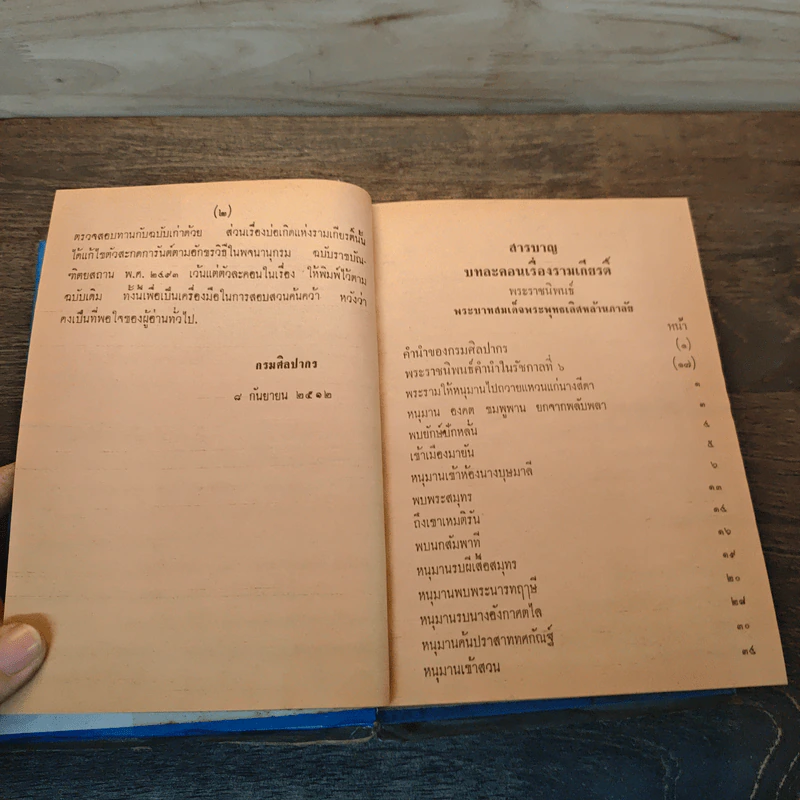 (๒)
ตรวจสอบทานกับฉบับเก่าด้วย ส่วนเรื่องบ่อเกิดแห่งรามเกียรติ์นั้น
ได้แก้ไขตัวสะกดการันต์ตามอักขรวิธีในพจนานุกรม ฉบับราชบัณ-
ฑิตยสถาน พ.ศ. ๒๔๙๓ เว้นแต่ตัวละคอนในเรื่อง ให้พิมพ์ไว้ตาม
ฉบับเดิม ทั้งนี้เพื่อเป็นเครื่องมือในการสอบสวนค้นคว้า หวังว่า
คงเป็นที่พอใจของผู้อ่านทั่วไป.
กรมศิลปากร
๘ กันยายน ๒๕๑๒
สารบาญ
บทละคอนเรื่องรามเกียรติ์
พระราชนิพนธ์
พระบาทสมเด็จพระพุทธเลิศหล้านภาลัย
หน้า
คำนำของกรมศิลปากร (๑)
พระราชนิพนธ์คำนำในรัชกาลที่ ๖ (๑๗)
พระรามให้หนุมานไปถวายแหวนแก่นางสีดา ๑
หนุมาน องคต ชมพูพาน ยกจากพลับพลา ๓
พบยักษ์ปักหลั่น ๔
เข้าเมืองมายัน ๕
หนุมานเข้าห้องนางบุษมาลี ๖
พบพระสมุทร ๑๓
ถึงเขาเหมติรัน ๑๔
พบนกสัมพาที ๑๖
หนุมานรบผีเสื้อสมุทร ๑๙
หนุมานพบพระนารทฤๅษี ๒๐
หนุมานรบนางอังกาศตไล ๒๗
หนุมานค้นปราสาททศกัณฐ์ ๓๐
หนุมานเข้าสวน ๓๔